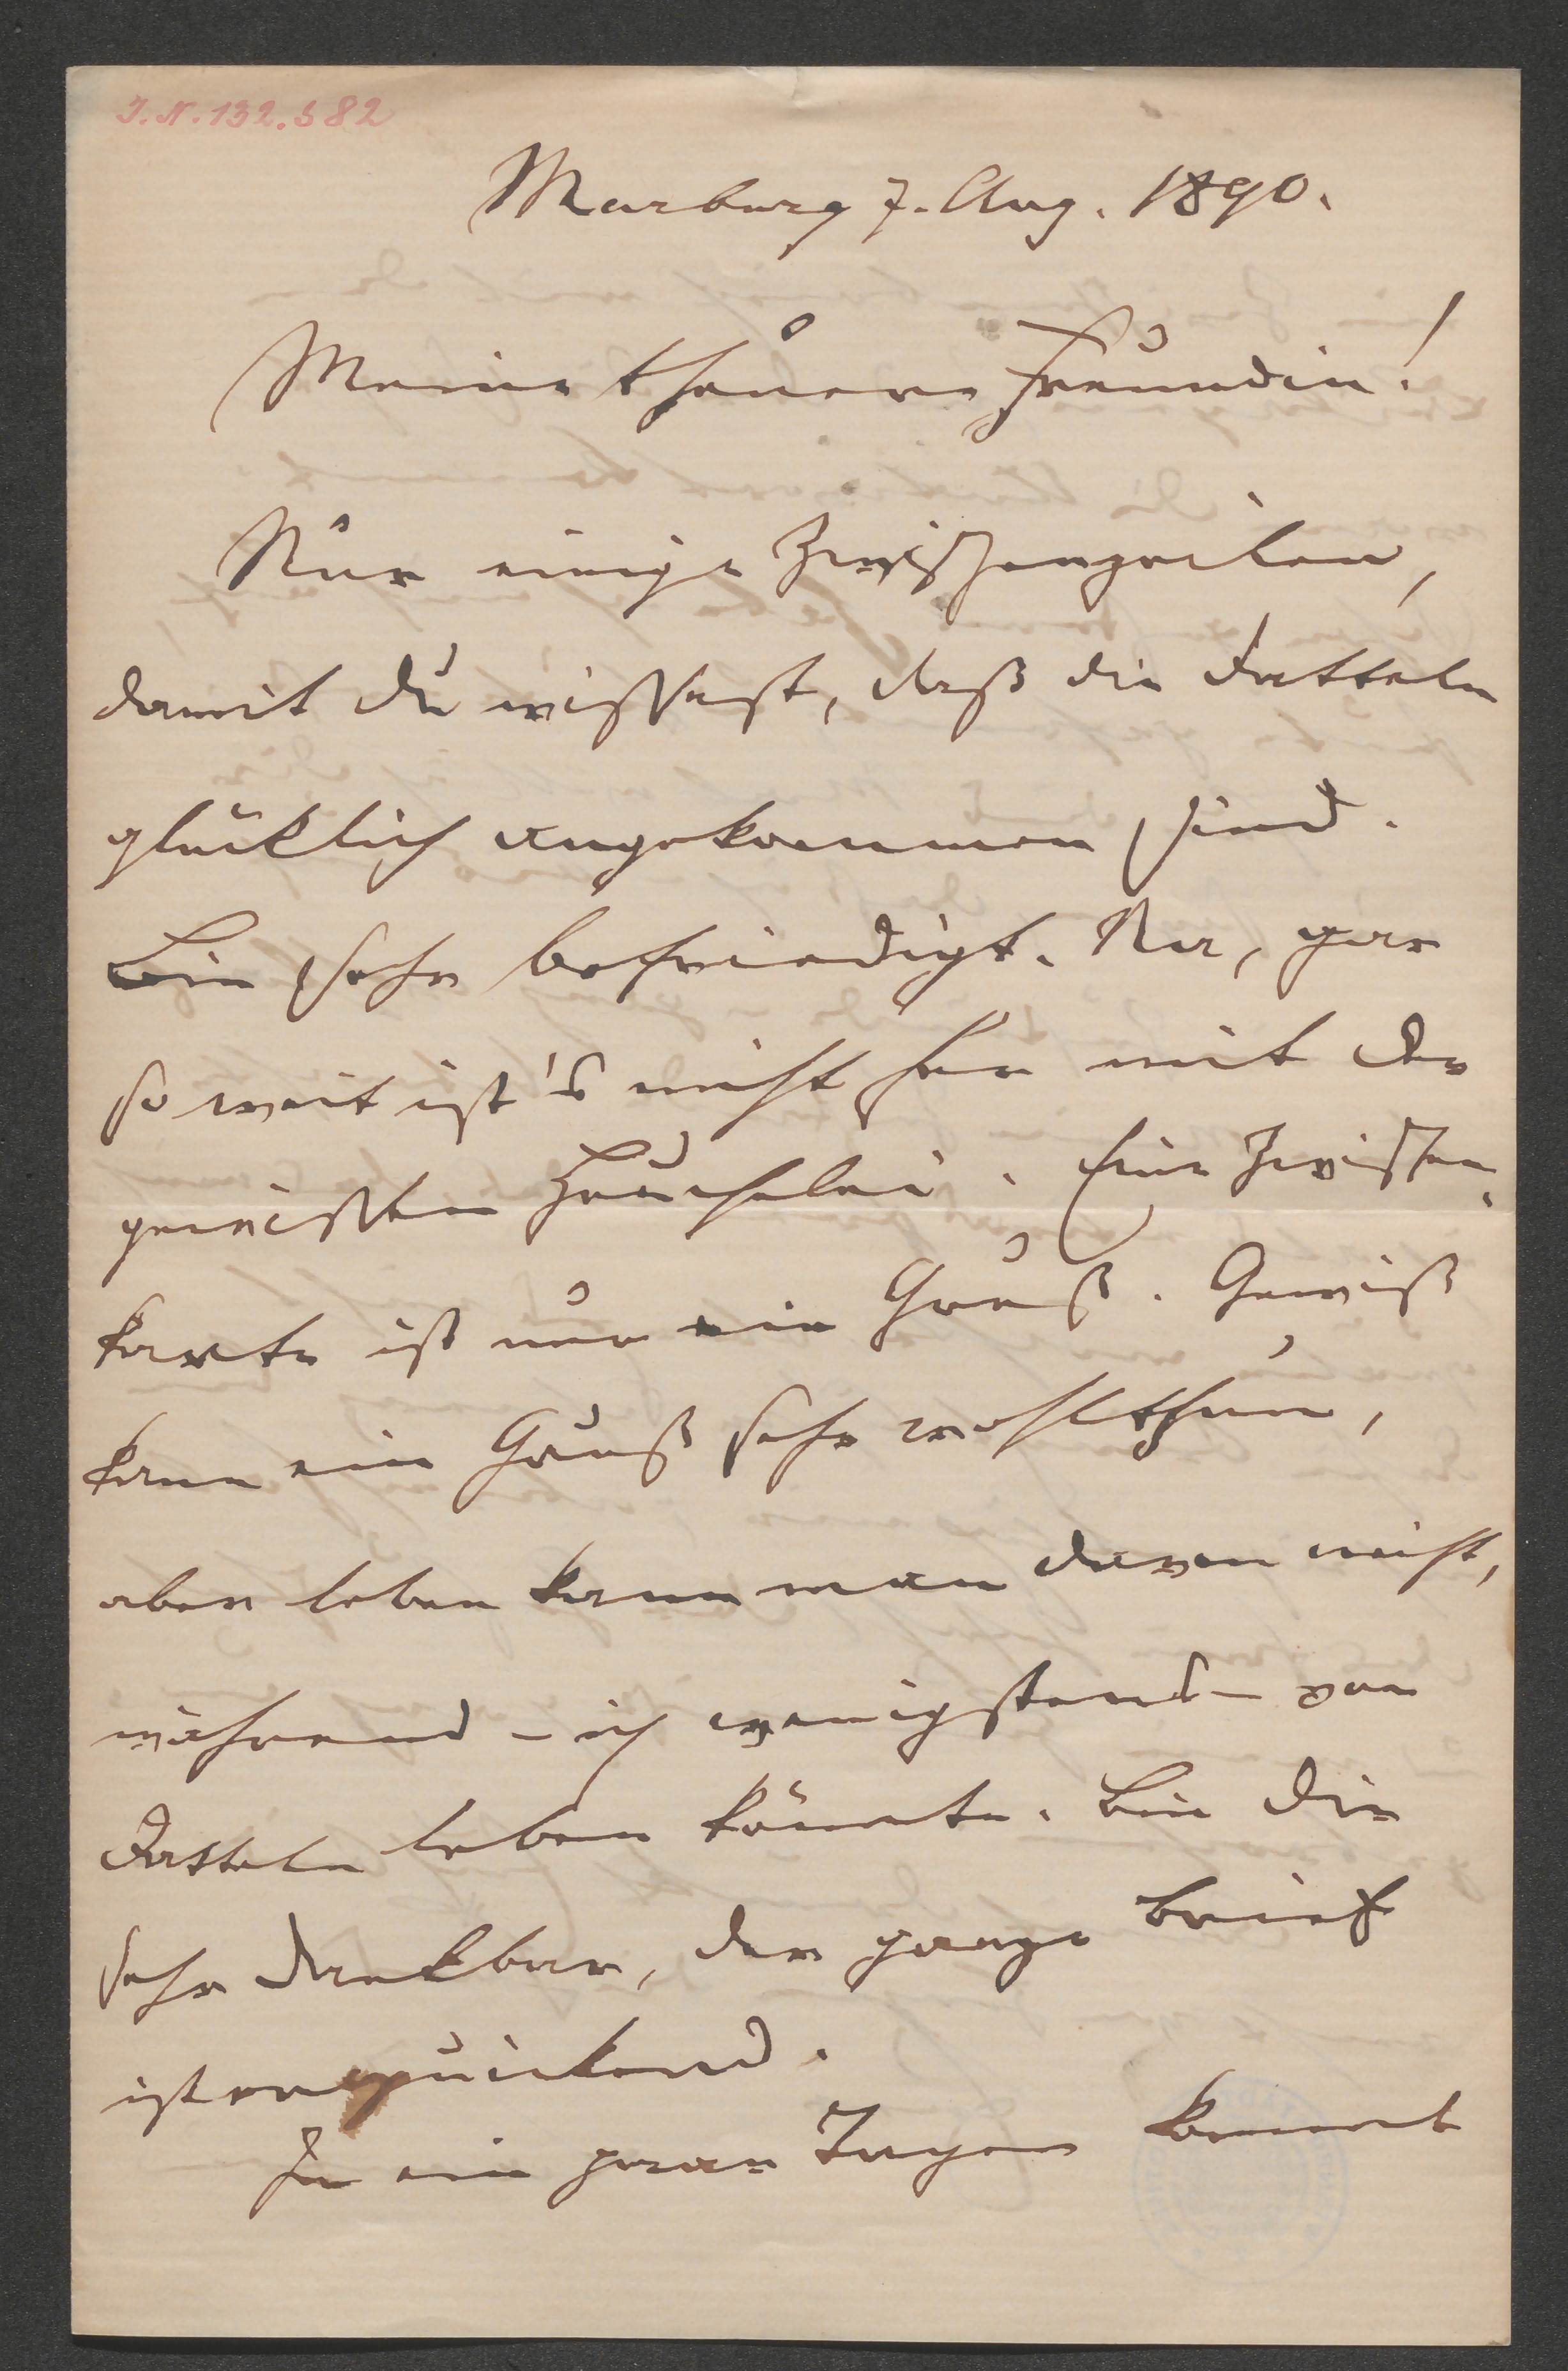 J. N. 132.582
Marburg 7. Aug. 1890.
Meine theuere Freundin!
Nur einige Zwischenzeilen,
damit Du wissest, daß die Datteln
glücklich angekommen sind.
Bin sehr befriedigt. Na, gar
so weit ist's nicht her mit der
gewissen Heuchelei. Eine Zwischen-
karte ist nur ein Gruß. Gewiß
kann ein Gruß sehr wohlthun,
aber leben kann man davon nicht,
während – ich wenigstens – von
Datteln leben könnte. Bin Dir
sehr dankbar, der ganze Brief
ist erquickend.
In ein paar Tagen kommt